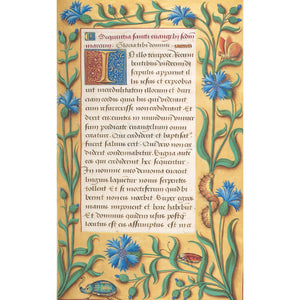 Sequentia sancti euangelij sedm
marcum. Gloria tibi domine
In illo tempore. Recum
bentibus vndecim di
scipulis apparuit il
lis iesus et exprobra
uit incredulitatem illorum et duri
ciam cordis quia his qui viderant
eum resurrexisse non crediderunt
Euntes in mundum
sum predicate euangelium omni
creature. Qui crediderit et baptisat
fuerit saluus erit. Qui vero non
diderit condemnabitur. Signa
eos qui crediderint hec sequentur.
In nomine meo demonia
linguis loquetur nouis serpentes
tollent. Et si mortiferum quid
Super egros
manus imponent et bene habebut
Et dominus quidem iesus postq
locutus est eis assumptus est in